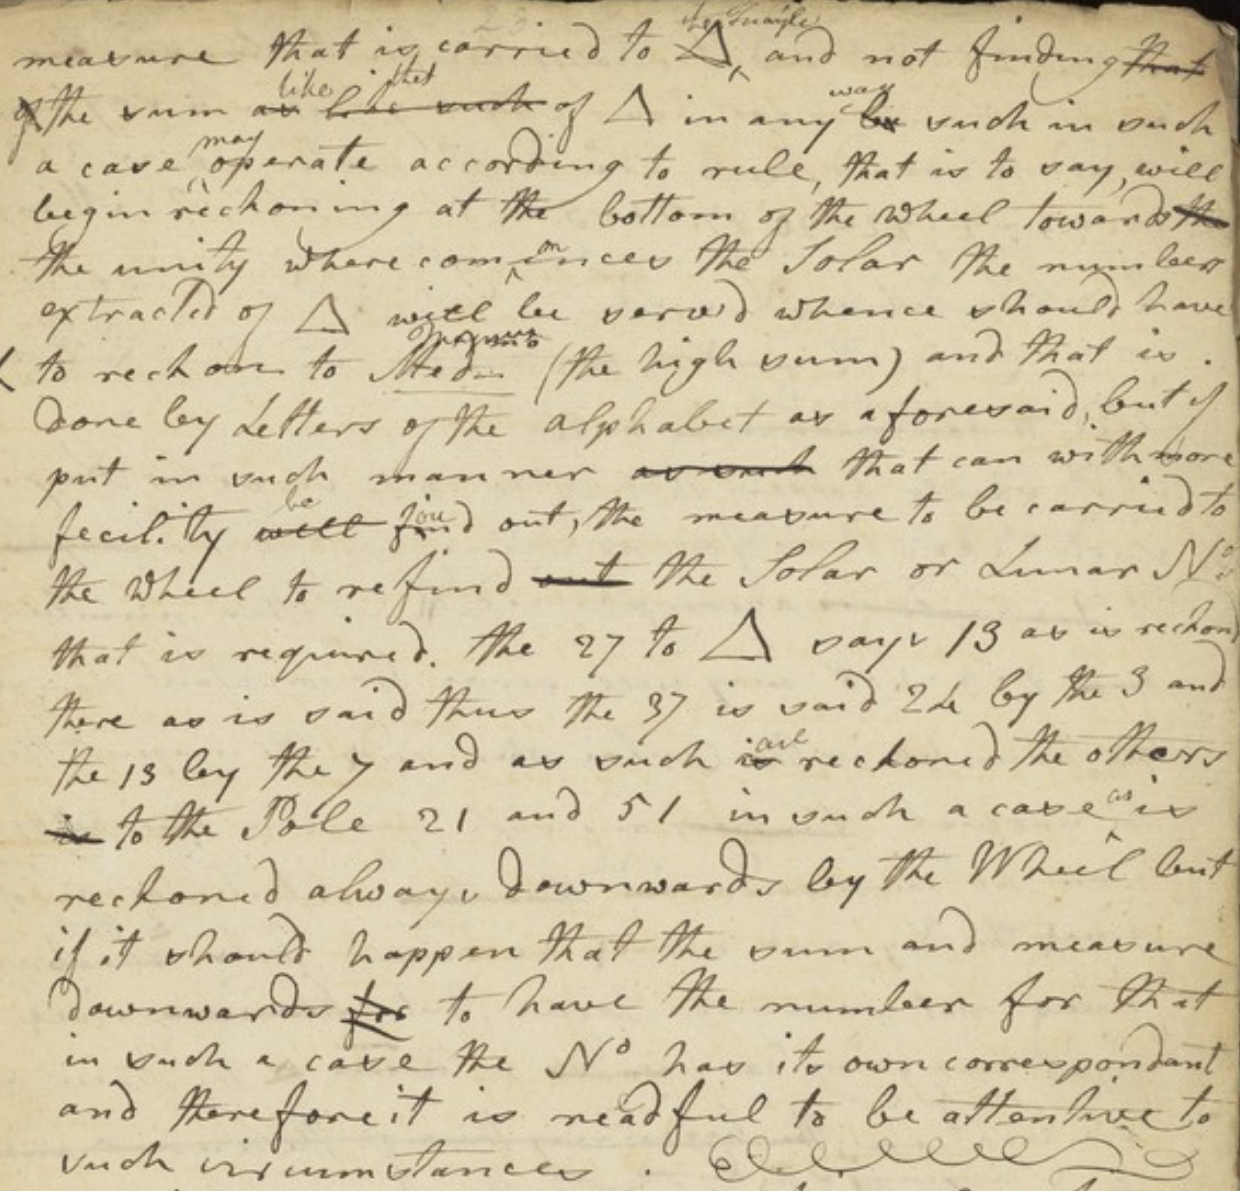 measure that is carried to the Triangle △, and not finding that
of the sum as like that such of △ in any way by such in such
a case may operate according to rule, that is to say, will
begin reckoning at the bottom of the Wheel towards the
the unity where commences the Solar the number
extracted of △ will be serv'd whence should have
to reckon to Med. (the high sum) and that is.
done by Letters of the alphabet as aforesaid, but if
put in such manner as such that can with more
fecility will be found out, the measure to be carried to
the Wheel to refind out the Solar or Lunar Nos
that is required. the 27 to △ says 13 as is reckond
there as is said thus the 37 is said 24 by the 3 and
the 13 by the 7 and as such is are reckoned the others
is to the Pole 21 and 51 in such a case as is
reckoned always downwards by the Wheel but
if it should happen that the sum and measure
downwards for to have the number for that
in such a case the No has its own correspondant
and therefore it is neadful to be attentive to
such circumstances.